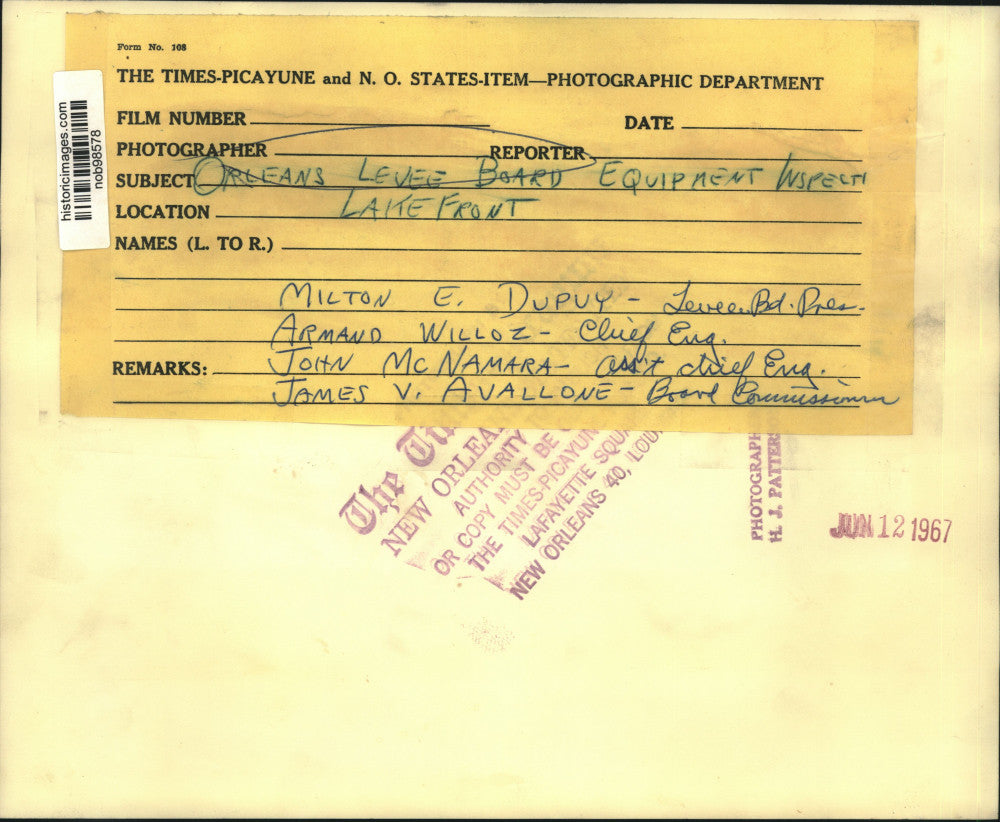 Form No. 108
THE TIMES-PICAYUNE and N. O. STATES-ITEM—PHOTOGRAPHIC DEPARTMENT
FILM NUMBER
DATE
PHOTOGRAPHER
REPORTER
SUBJECT ORLEANS LEVEE BOARD EQUIPMENT INSPECTI
LOCATION LAKEFRONT
NAMES (L. TO R.)
MILTON E. DUPUY - Levee Bd. Pres.
ARMAND WILLOZ - Chief Eng.
REMARKS: JOHN MCNAMARA - Ass't chief Eng.
JAMES V. AVALLONE - Board Commissioner
historicimages.com
nob98578
The
NEW ORLEA
AUTHORITY
OR COPY MUST BE
THE TIMES-PICAYUN
LAFAYETTE SQUA
NEW ORLEANS 40, LOU
PHOTOGRAPH
H. J. PATTERS
JUN 12 1967